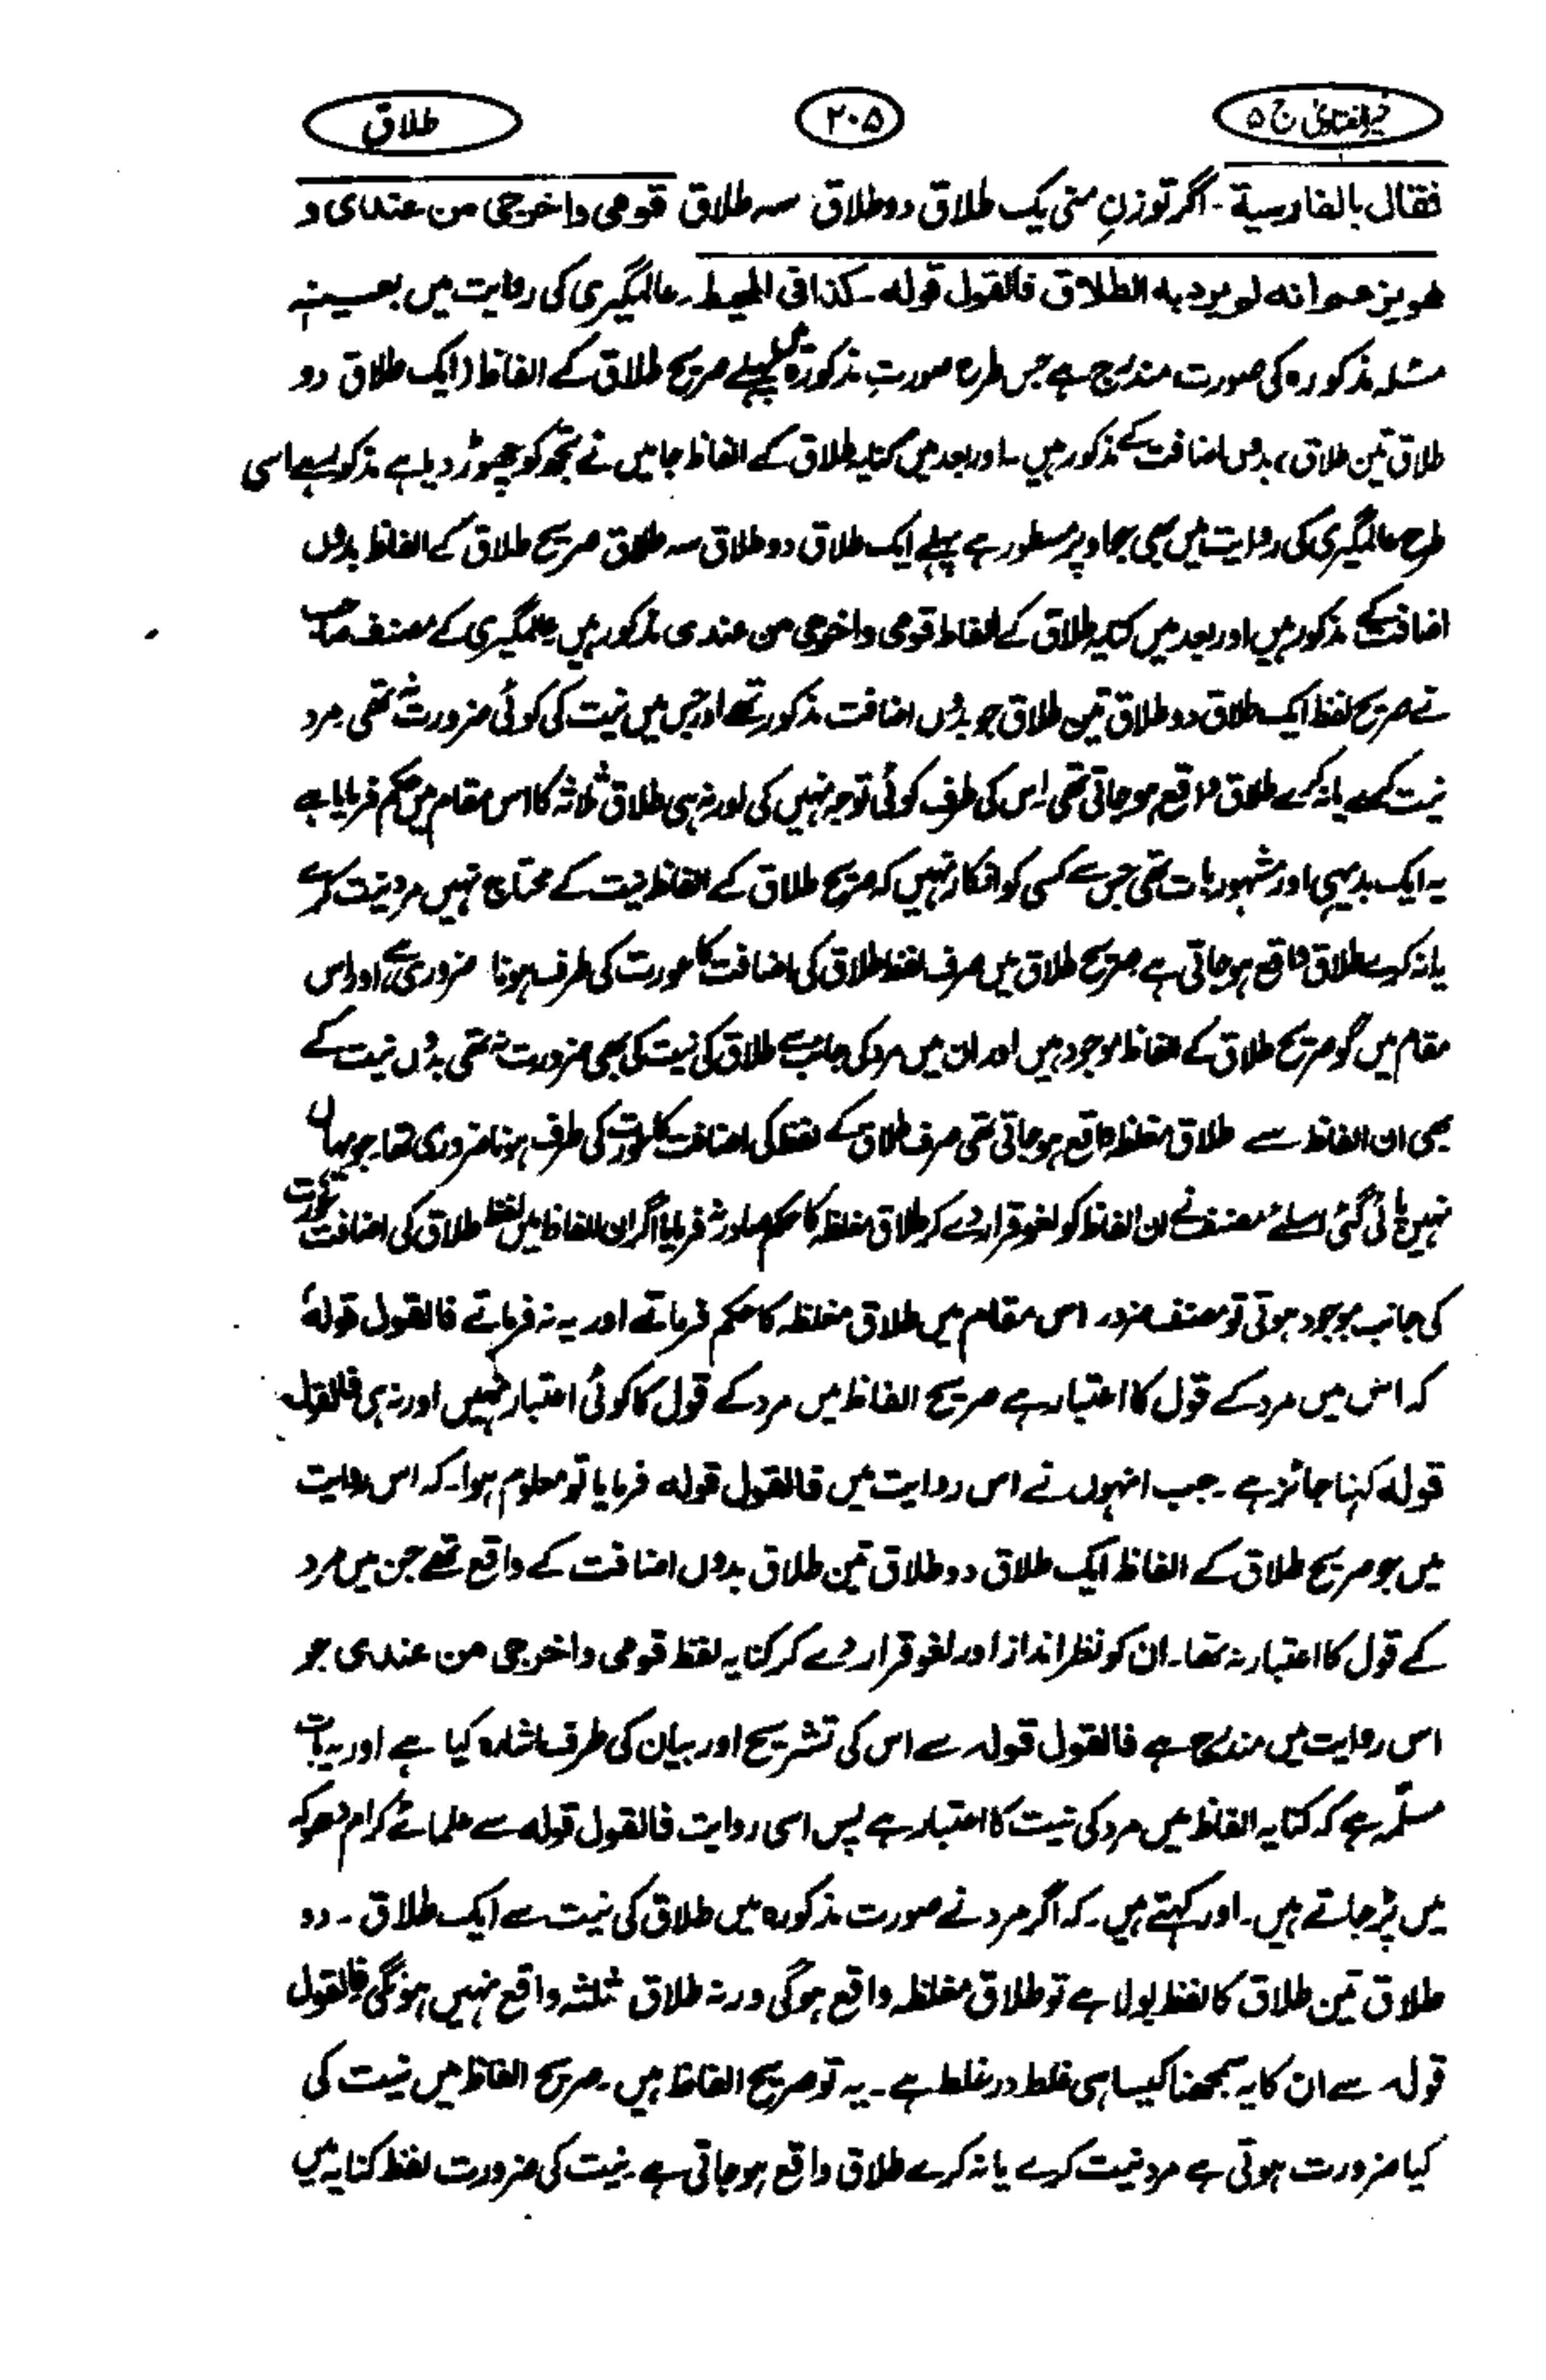 خیر الفتاوی ج ۵
۲۰۵
طلاق
فقال بالفارسیة ۔ اگر تو زنِ منی یک طلاق دو طلاق سہ طلاق قومی واخرجی من عندی و
ھو یزعم انہ لم یرد بہ الطلاق فالقول قولہ ۔ کذافی المحیط ۔ عالمگیری کی روایت میں بعینہٖ
مسئلہ مذکورہ کی صورت مندرج ہے جس طرح صورتِ مذکورہ میں پہلے صریح طلاق کے الفاظ (ایک طلاق دو
طلاق تین طلاق) بدوں اضافت کے مذکور ہیں ۔ اور بعد میں کنایہ طلاق کے الفاظ جا میں نے تجھ کو چھوڑ دیا ہے مذکور ہے اسی
طرح عالمگیری کی روایت میں بھی جو اوپر مسطور ہے پہلے ایک طلاق دو طلاق سہ طلاق صریح طلاق کے الفاظ بدوں
اضافت کے مذکور ہیں اور بعد میں کنایہ طلاق کے الفاظ قومی واخرجی من عندی مذکور ہیں عالمگیری کے مصنف صاحب
نے صریح لفظ ایک طلاق دو طلاق تین طلاق جو بدوں اضافت مذکور تھے اور جس میں نیت کی کوئی ضرورت نہ تھی مرد
نیت کرے یا نہ کرے طلاق واقع ہو جاتی تھی اس کی طرف کوئی توجہ نہیں کی اور نہ ہی طلاق ثلاثہ کا اس مقام میں حکم فرمایا ہے
یہ ایک بدیہی اور مشہور بات تھی جس سے کسی کو انکار نہیں کہ صریح طلاق کے الفاظ نیت کے محتاج نہیں مرد نیت کرے
یا نہ کرے طلاق واقع ہو جاتی ہے صریح طلاق میں صرف لفظ طلاق کی اضافت کا عورت کی طرف ہونا ضروری ہے، اور اس
مقام میں گو صریح طلاق کے الفاظ موجود ہیں اور ان میں مرد کی جانب سے طلاق کی نیت کی بھی ضرورت نہ تھی بدوں نیت کے
بھی ان الفاظ سے طلاق مغلظہ واقع ہو جاتی تھی صرف طلاق کے لفظ کی اضافت کا عورت کی طرف ہونا ضروری تھا۔ جو یہاں
نہیں پائی گئی اسلئے مصنف نے ان الفاظ کو لغو قرار دے کر طلاق مغلظہ کا حکم صادر نہ فرمایا اگر ان الفاظ میں لفظ طلاق کی اضافت عورت
کی جانب موجود ہوتی تو مصنف ضرور اس مقام میں طلاق مغلظہ کا حکم فرماتے اور یہ نہ فرماتے فالقول قولہٗ
کہ اس میں مرد کے قول کا اعتبار ہے صریح الفاظ میں مرد کے قول کا کوئی اعتبار نہیں اور نہ ہی فالقول
قولہٗ کہنا جائز ہے ۔ جب انہوں نے اس روایت میں فالقول قولہ فرمایا تو معلوم ہوا۔ کہ اس روایت
میں جو صریح طلاق کے الفاظ ایک طلاق دو طلاق تین طلاق بدوں اضافت کے واقع تھے جن میں مرد
کے قول کا اعتبار نہ تھا۔ ان کو نظر انداز اور لغو قرار دے کر کنایہ لفظ قومی واخرجی من عندی جو
اس روایت میں مندرج ہے فالقول قولہ سے اس کی تشریح اور بیان کی طرف اشارہ کیا ہے اور یہ بات
مسلّمہ ہے کہ کنایہ الفاظ میں مرد کی نیت کا اعتبار ہے پس اسی روایت فالقول قولہ سے علمائے کرام دھوکہ
میں پڑ جاتے ہیں ۔ اور کہتے ہیں ۔ کہ اگر مرد نے صورت مذکورہ میں طلاق کی نیت سے ایک طلاق ۔ دو
طلاق تین طلاق کا لفظ بولا ہے تو طلاق مغلظہ واقع ہوگی ورنہ طلاق ثلثہ واقع نہیں ہونگی فالقول
قولہ سے ان کا یہ سمجھنا کیسا ہی غلط در غلط ہے ۔ یہ تو صریح الفاظ ہیں ۔ صریح الفاظ میں نیت کی
کیا ضرورت ہوتی ہے مرد نیت کرے یا نہ کرے طلاق واقع ہو جاتی ہے ۔ نیت کی ضرورت لفظ کنایہ میں